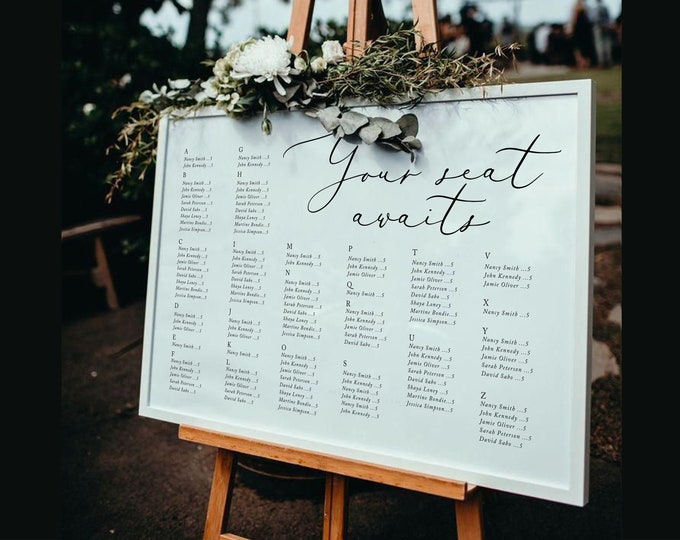 Your seat
awaits
A
Nancy Smith ...5
John Kennedy ...5
B
Nancy Smith ...5
John Kennedy ...5
Jamie Oliver ...5
Sarah Peterson ...5
David Sabo ...5
Shaya Loney ...5
Martine Bondie...5
Jessica Simpson...5
C
Nancy Smith ...5
John Kennedy ...5
Jamie Oliver ...5
Sarah Peterson ...5
David Sabo ...5
Shaya Loney ...5
Martine Bondie...5
Jessica Simpson...5
D
Nancy Smith ...5
John Kennedy ...5
Jamie Oliver ...5
E
Nancy Smith ...5
F
Nancy Smith ...5
John Kennedy ...5
Jamie Oliver ...5
Sarah Peterson ...5
David Sabo ...5
G
Nancy Smith ...5
John Kennedy ...5
H
Nancy Smith ...5
John Kennedy ...5
Jamie Oliver ...5
Sarah Peterson ...5
David Sabo ...5
Shaya Loney ...5
Martine Bondie...5
Jessica Simpson...5
I
Nancy Smith ...5
John Kennedy ...5
Jamie Oliver ...5
Sarah Peterson ...5
David Sabo ...5
Shaya Loney ...5
Martine Bondie...5
Jessica Simpson...5
J
Nancy Smith ...5
John Kennedy ...5
Jamie Oliver ...5
K
Nancy Smith ...5
L
Nancy Smith ...5
John Kennedy ...5
Jamie Oliver ...5
Sarah Peterson ...5
David Sabo ...5
M
Nancy Smith ...5
John Kennedy ...5
N
Nancy Smith ...5
John Kennedy ...5
Jamie Oliver ...5
Sarah Peterson ...5
David Sabo ...5
Shaya Loney ...5
Martine Bondie...5
Jessica Simpson...5
O
Nancy Smith ...5
John Kennedy ...5
Jamie Oliver ...5
Sarah Peterson ...5
David Sabo ...5
Shaya Loney ...5
Martine Bondie...5
Jessica Simpson...5
P
Nancy Smith ...5
John Kennedy ...5
Jamie Oliver ...5
Q
Nancy Smith ...5
R
Nancy Smith ...5
John Kennedy ...5
Jamie Oliver ...5
Sarah Peterson ...5
David Sabo ...5
S
Nancy Smith ...5
John Kennedy ...5
Jamie Oliver ...5
Sarah Peterson ...5
David Sabo ...5
T
Nancy Smith ...5
John Kennedy ...5
Jamie Oliver ...5
Sarah Peterson ...5
David Sabo ...5
Shaya Loney ...5
Martine Bondie...5
Jessica Simpson...5
U
Nancy Smith ...5
John Kennedy ...5
Jamie Oliver ...5
Sarah Peterson ...5
David Sabo ...5
Shaya Loney ...5
Martine Bondie...5
Jessica Simpson...5
V
Nancy Smith ...5
John Kennedy ...5
Jamie Oliver ...5
X
Nancy Smith ...5
Y
Nancy Smith ...5
John Kennedy ...5
Jamie Oliver ...5
Sarah Peterson ...5
David Sabo ...5
Z
Nancy Smith ...5
John Kennedy ...5
Jamie Oliver ...5
Sarah Peterson ...5
David Sabo ...5